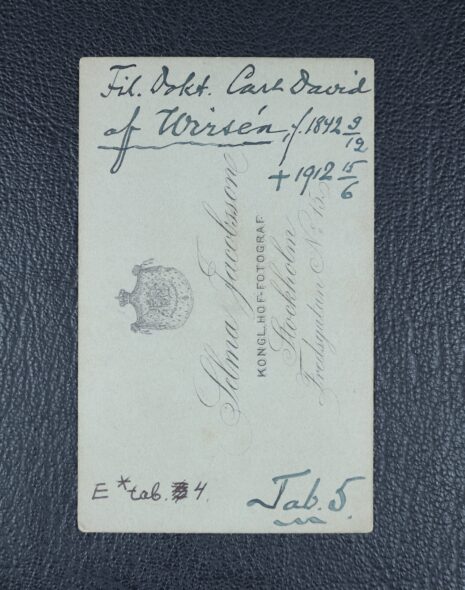 Fil. Dokt. Carl David
af Wirsén, f. 1842 9/12
+ 1912 15/6
Selma Jacobsson
KONGL. HOF-FOTOGRAF
Stockholm
Fredsgatan No 15
E * tab. 4.
Tab. 5.